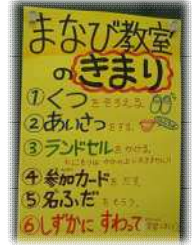 まなび教室
のきまり
①くつをそろえる。
②あいさつをする。
③ランドセルをかける。
④参加カードをだす。
⑤名ふだをもらう。
⑥しずかにすわって